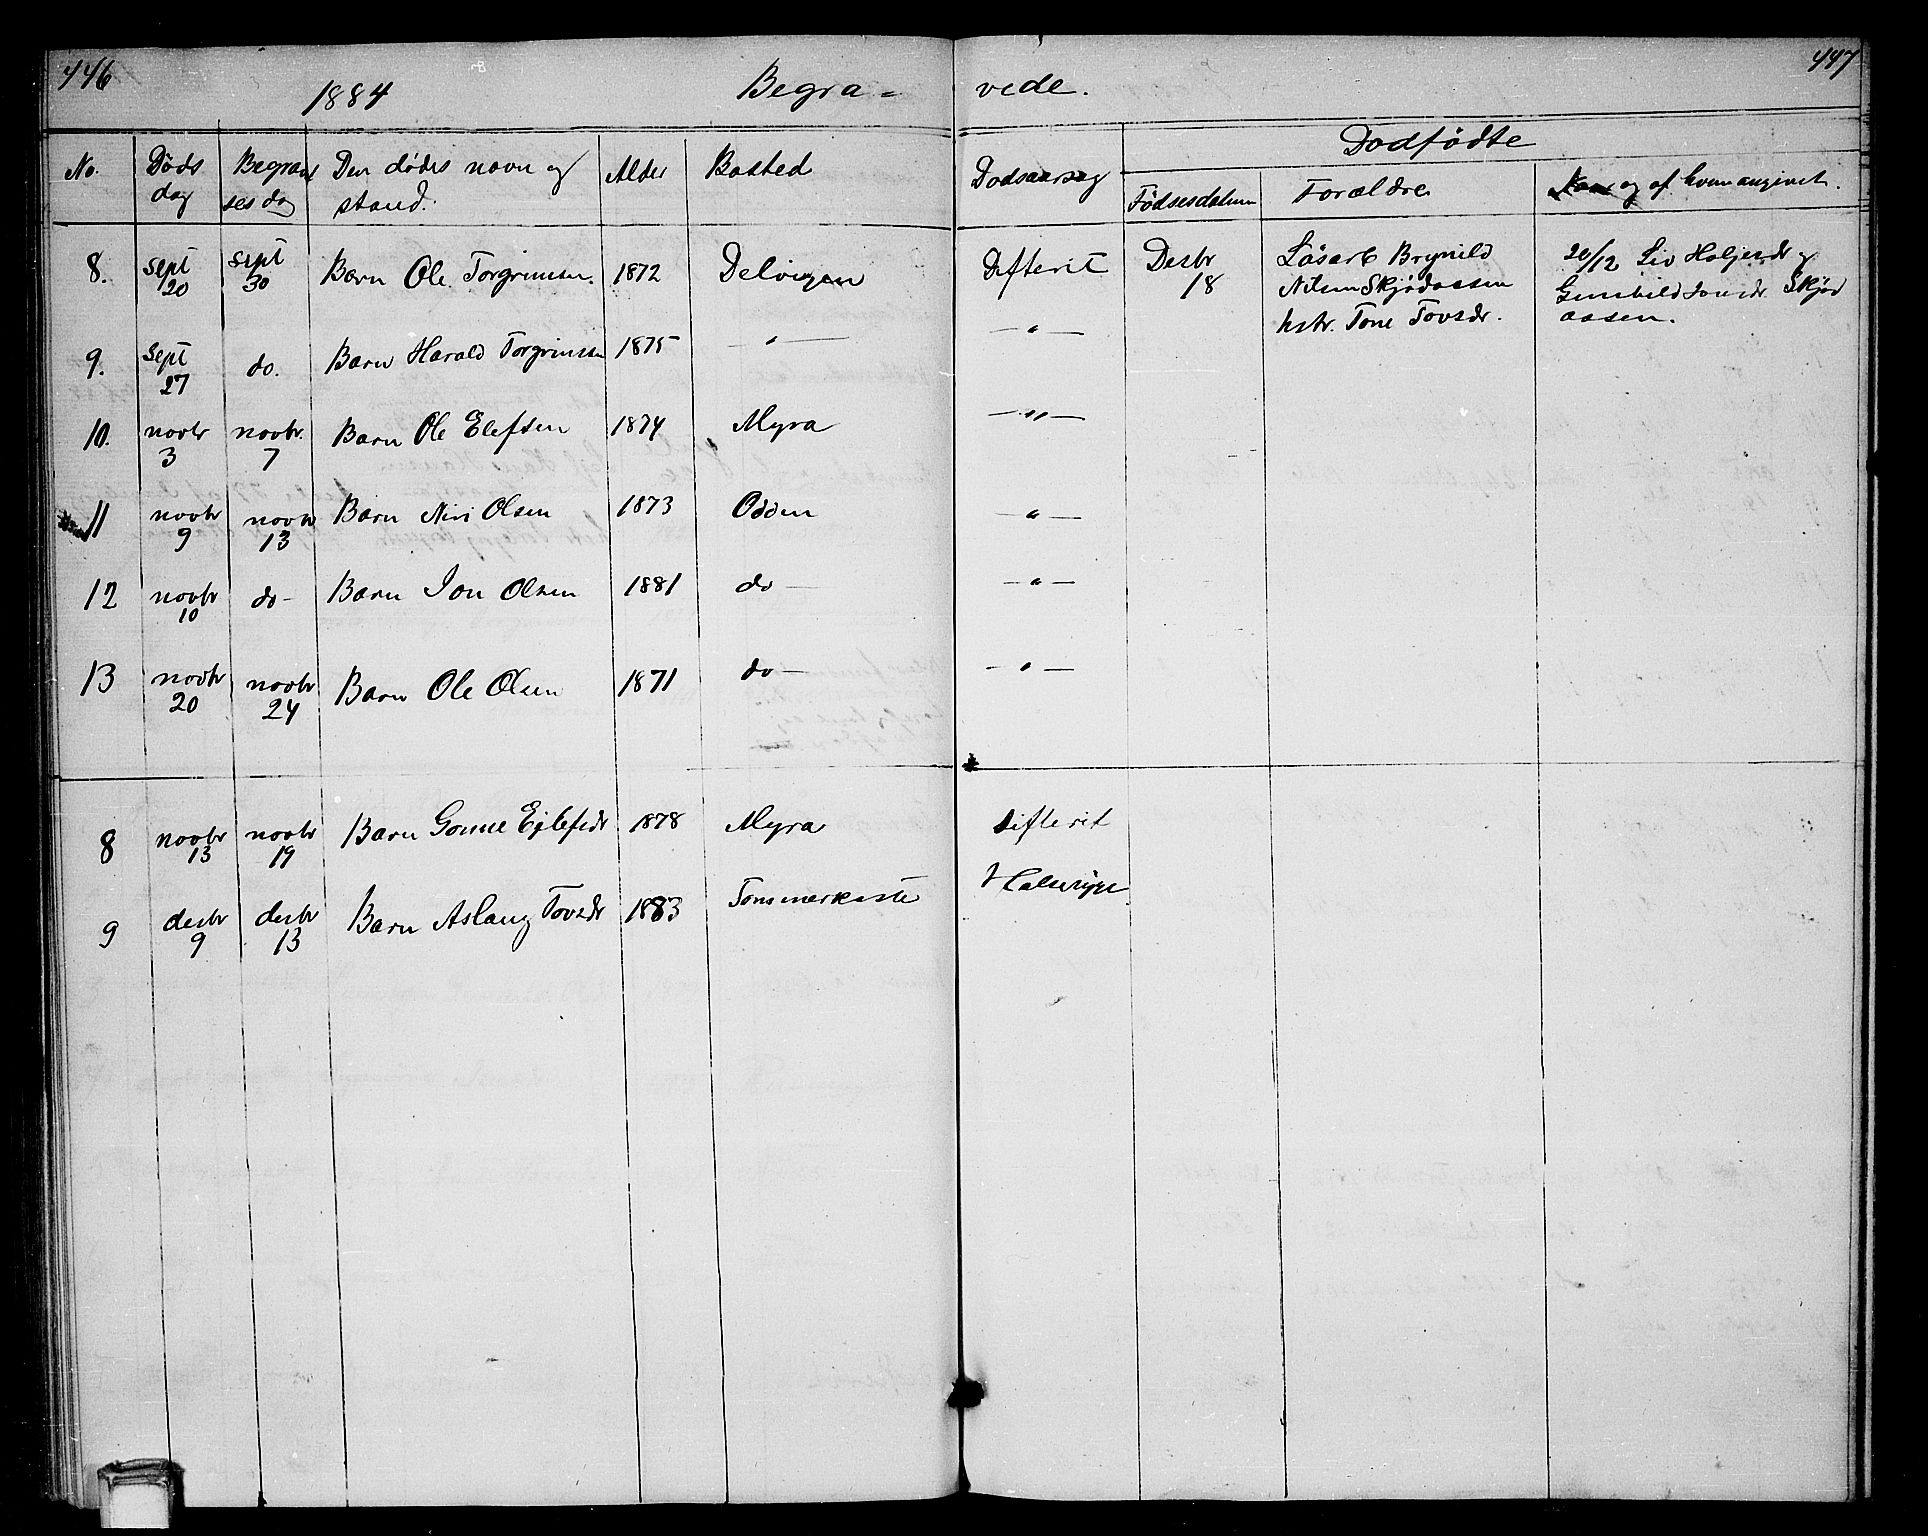 446
1884 Begra= vede.
447
No. Døds dag Begravelsesdag Den dødes navn og stand. Alder Bosted Dodsaarsag Dødfødte
Fødsesdatum Forældre og af hvem angivet.
8. Sept 20 Sept 30 Barn Ole Torgrimsen. 1872 Delvigen Difterit Desbr 18 Løsarb Brynild 20/12 Liv Holjesdr og
Nilsen Skjødaasen Gunhild Jonsdr. Skjød
hstr. Tone Tovsdr. aasen.
9. Sept 27 do. Barn Harald Torgrimsen 1875 — " — — " —
10. novbr 3 novbr. 7 Barn Ole Elefsen 1874 Myra — " —
11 novbr 9 novbr 13 Barn Niri Olsen 1873 Odden — " —
12 novbr 10 do — Barn Jon Olsen 1881 do — — " —
13 novbr 20 novbr 24 Barn Ole Olsen 1871 do — — " —
8 novbr 13 novbr 19 Barn Gonne Ejlefsdr 1878 Myra Difterit
9 desbr 9 desbr 13 Barn Aslaug Tovsdr 1883 Tommerkaste Halssyge